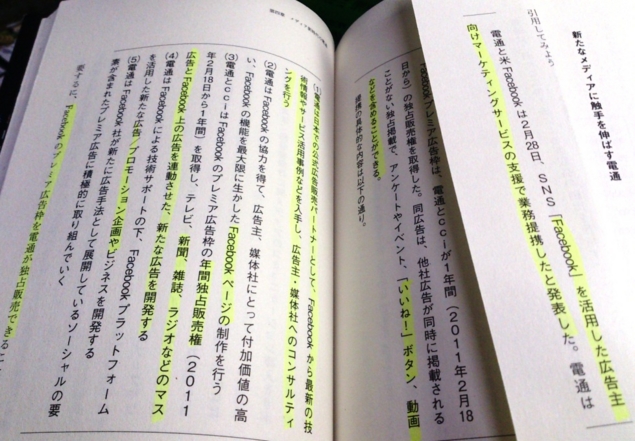 新たなメディアに触手を伸ばす電通
引用してみよう
電通と米Facebookは2月28日、SNS「Facebook」を活用した広告主
向けマーケティングサービスの支援で業務提携したと発表した。電通は
Facebookプレミア広告枠は、電通とcciが1年間(2011年2月18
日から)の独占販売権を取得した。同広告は、他社広告が同時に掲載される
ことがない独占掲載で、アンケートやイベント、「いいね!」ボタン、動画
などを含めることができる。
提携の具体的な内容は以下の通り。
(1)電通は日本での公式広告販売パートナーとして、Facebookから最新の技
術情報やサービス活用事例などを入手し、広告主・媒体社へのコンサルティ
ングを行う
(2)電通はFacebookの協力を得て、広告主、媒体社にとって付加価値の高
い、Facebookの機能を最大限に生かしたFacebookページの制作を行う
(3)電通とcciはFacebookのプレミア広告枠の年間独占販売権(2011
年2月18日から1年間)を取得し、テレビ、新聞、雑誌、ラジオなどのマス
広告とFacebook上の広告を連動させた、新たな広告を開発する
(4)電通はFacebookによる技術サポートの下、Facebookプラットフォーム
を活用した新たな広告/プロモーション企画やビジネスを開発する
(5)電通はFacebook社が新たに広告手法として展開しているソーシャルの要
素が含まれたプレミア広告に積極的に取り組んでいく
要するに、Facebookのプレミア広告枠を電通が独占販売できるこ